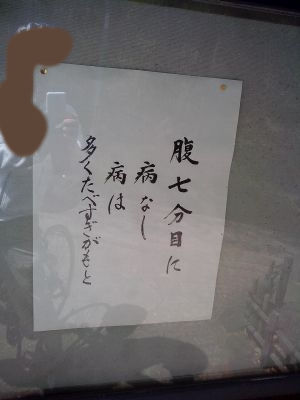 腹七分目に
病なし
病は
多くたべすぎがもと